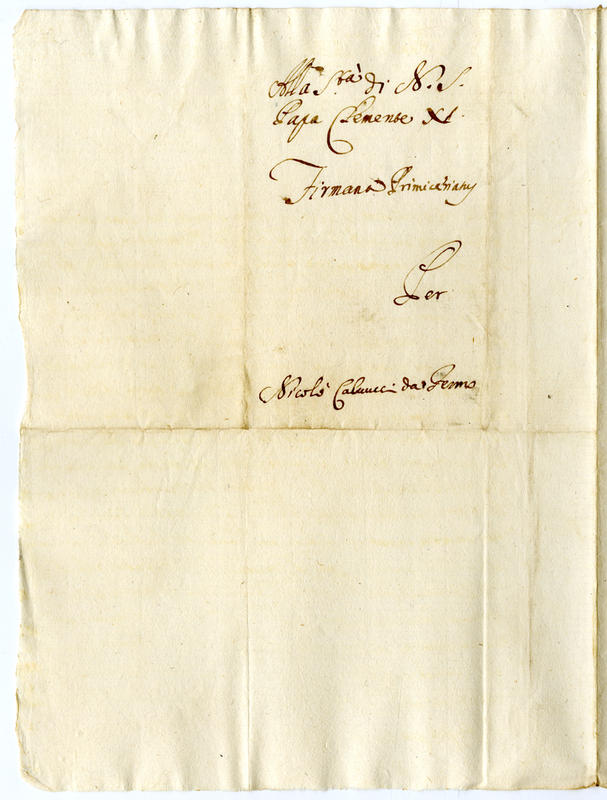 Alla S.tà di N. S.
Papa Clemente XI
Firmana Primiceriatus
Per
Nicolò Calvucci da Fermo